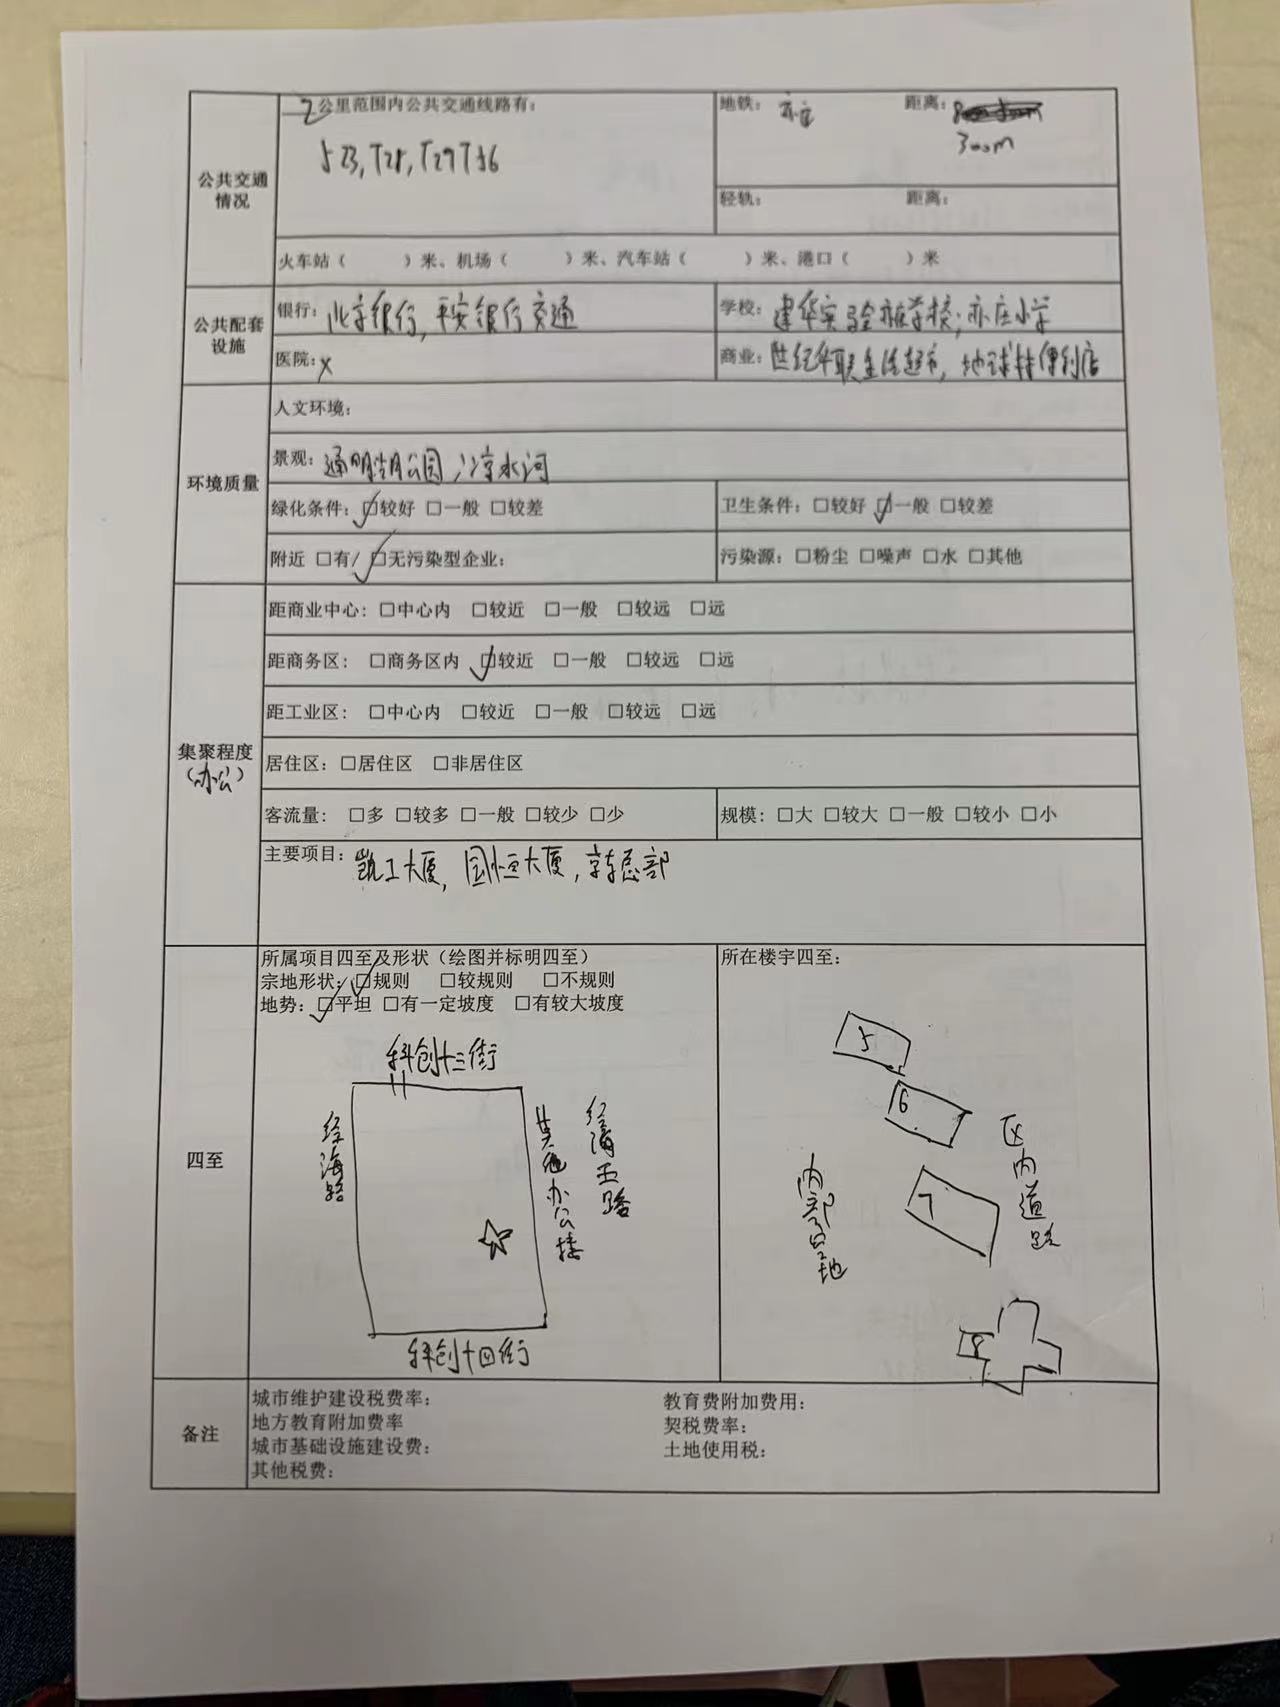 2公里范围内公共交通线路有：
523, T28, T29 T56
地铁： 亦庄 距离：
300m
公共交通情况
轻轨： 距离：
火车站（ ）米、机场（ ）米、汽车站（ ）米、港口（ ）米
公共配套设施
银行：北京银行, 平安银行 交通
学校：建华实验亦庄学校; 亦庄小学
医院：x
商业：世纪华联生活超市, 地球村便利店
环境质量
人文环境：
景观：通明湖公园, 凉水河
绿化条件：☑较好 □一般 □较差
卫生条件：□较好 ☑一般 □较差
附近 □有/☑无污染型企业：
污染源：□粉尘 □噪声 □水 □其他
集聚程度
（办公）
距商业中心：□中心内 □较近 □一般 □较远 □远
距商务区： □商务区内 ☑较近 □一般 □较远 □远
距工业区： □中心内 □较近 □一般 □较远 □远
居住区：□居住区 □非居住区
客流量： □多 □较多 □一般 □较少 □少
规模：□大 □较大 □一般 □较小 □小
主要项目：凯工大厦, 国恒大厦, 京东总部
四至
所属项目四至及形状（绘图并标明四至）
宗地形状：☑规则 □较规则 □不规则
地势：☑平坦 □有一定坡度 □有较大坡度
科创十三街
经海路
其他办公楼
经海五路
科创十四街
所在楼宇四至：
5
6
7
8
区内道路
内部空地
备注
城市维护建设税费率： 教育费附加费用：
地方教育附加费率 契税费率：
城市基础设施建设费： 土地使用税：
其他税费：